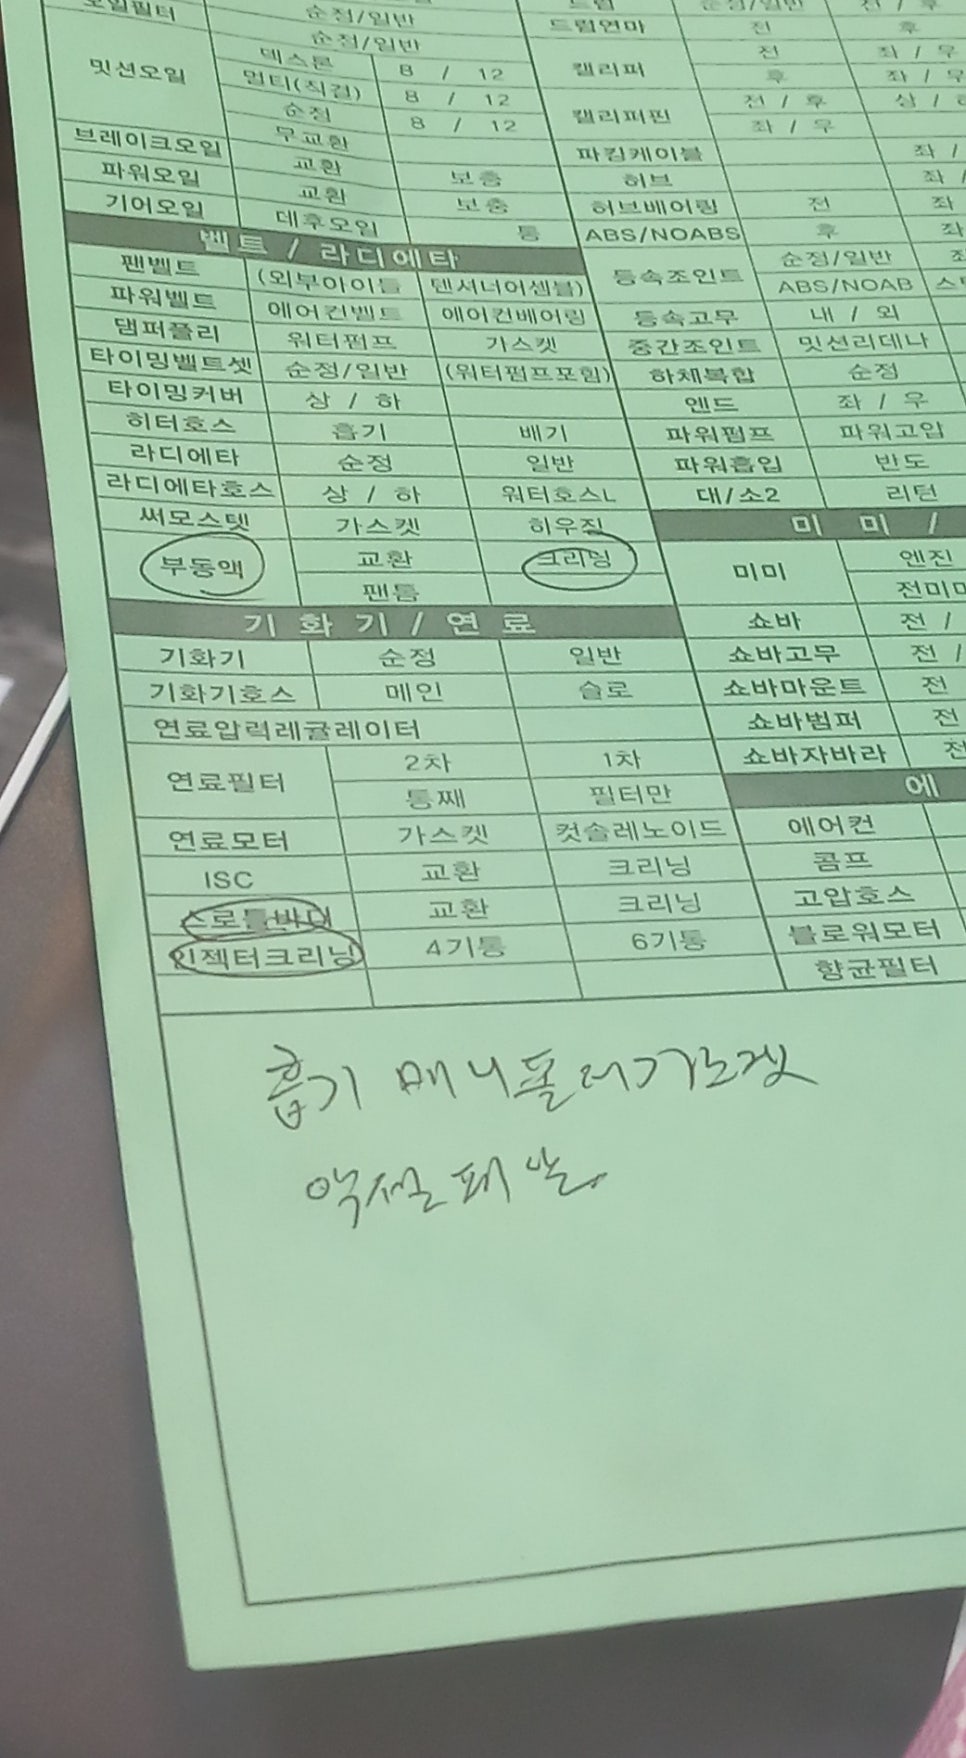 오일필터 순정/일반 드럼 순정/일반 전 / 후
순정/일반 드럼연마 전 후
밋션오일 덱스론 8 / 12 캘리퍼 전 좌 / 우
멀티(직접) 8 / 12 후 좌 / 우
순정 8 / 12 캘리퍼핀 전 / 후 상 /
브레이크오일 무교환 좌 / 우
파워오일 교환 보충 파킹케이블 좌 /
기어오일 교환 보충 허브 좌 /
데후오일 통 허브베어링 전 좌
벨트 / 라디에타 ABS/NOABS 후 좌
팬벨트 (외부아이들 텐셔너어셈블) 등속조인트 순정/일반
파워벨트 에어컨벨트 에어컨베어링 ABS/NOAB
댐퍼풀리 워터펌프 가스켓 등속고무 내 / 외
타이밍벨트셋 순정/일반 (워터펌프포함) 중간조인트 밋션리데나
타이밍커버 상 / 하 하체복합 순정
히터호스 흡기 배기 엔드 좌 / 우
라디에타 순정 일반 파워펌프 파워고압
라디에타호스 상 / 하 워터호스L 파워흡입 반도
써모스텟 가스켓 하우징 대/소2 리턴
부동액 교환 크리닝 미 미 /
팬틈 미미 엔진
전미미
기 화 기 / 연 료 쇼바 전 /
기화기 순정 일반 쇼바고무 전 /
기화기호스 메인 슬로 쇼바마운트 전
연료압력레귤레이터 쇼바범퍼 전
연료필터 2차 1차 쇼바자바라 전
통째 필터만 에
연료모터 가스켓 컷솔레노이드 에어컨
ISC 교환 크리닝 콤프
스로틀바디 교환 크리닝 고압호스
인젝터크리닝 4기통 6기통 블로워모터
향균필터
흡기 매니폴더가스켓
악셀 페달